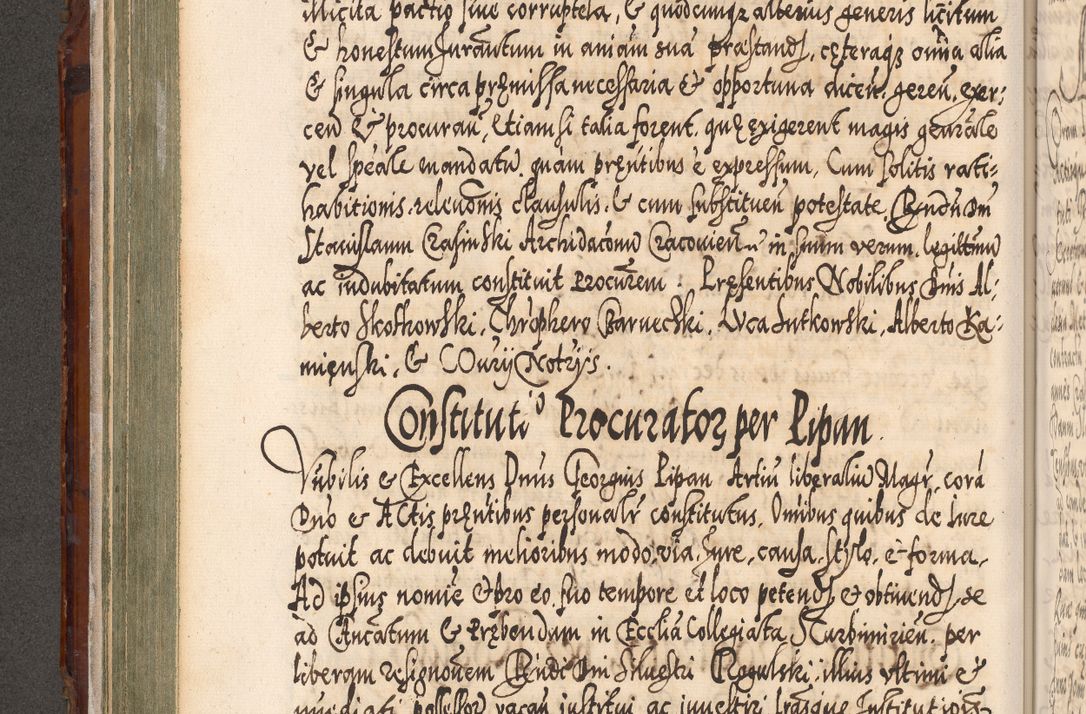 illicita pactio siue corruptela, & quodcunqz alterius generis licitum
& honestum Jurautum in aniam sua præstandj, cęteraqz omia alia
& singula circa pręmissa necessaria & opportuna dicen. geren. exer:
cen & procuran, Etiamsi talia forent, quę exigerent magis genrale
vel speale mandatu quam pręntibus e expressum, Cum solitis rati=
habitionis. releuonis clausulis. & cum substituen potestate Rndu Dm
Stanislaum Crasinski Archidaconu Cracouien in suum verum. legittimu
ac indubitatum constituit procurem: Pręsentibus Nobilibus Dnis Al:
berto Skotkowski, Chrophero Baruechski, Luca Sutkowski, Alberto Ka=
mięnski, & Notrys.
Constitutio Procurator per Pipan
Nobilis & Excellens Dnus Georgius Pipan Artiu liberaliu Magr, cora
Dno & Actis pręntibus personalr constitutus, Omibus quibus de Jure
potuit ac debuit melioribus modo, via, Jure, causa, stylo, e forma.
Ad ipsius nomie & pro eo suo tempore et loco petendj & obtinendj se
ad Cancatum & Prębendam in Ecclia Collegiata per
liberam resignonem Rndi Dni Siluestri Rogulski, illius vltimi &
mediati possessor vacan institui ac inuestiri Institutionis